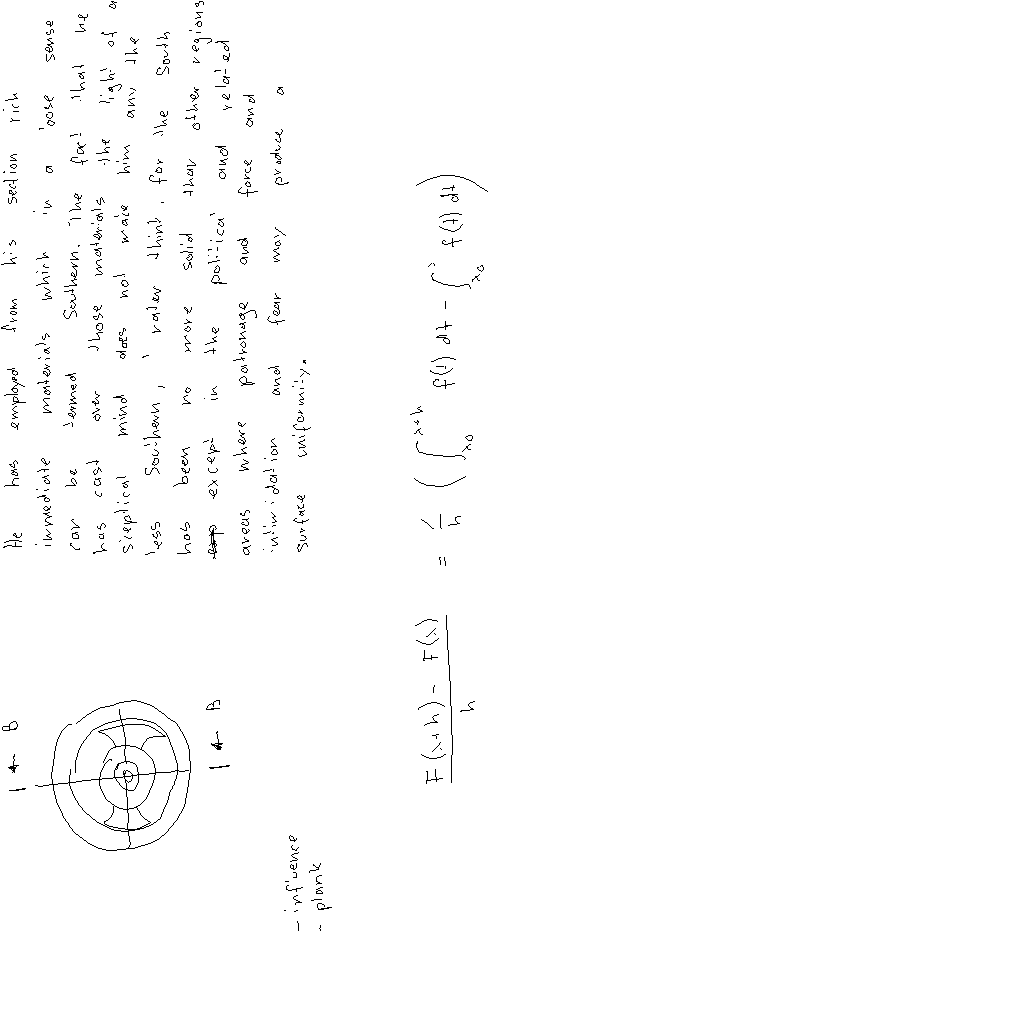 He has employed from his section rich
immediate materials which in a loose sense
can be termed Southern. The fact that he
has cast over those materials the light of a
skeptical mind does not make him any the
less Southern, I rather think, for the South
has been no more solid than other regions
except in the political and related
areas where patronage and force and
intimidation and fear may produce a
surface uniformity.
B
B
- influence
- plank
\frac{F(x+h) - F(x)}{h} = \frac{1}{h} ( \int_{x_0}^{x+h} f(t) dt - \int_{x_0}^{x} f(t) dt )